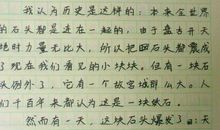 我认为历史是这样的：本来全世界
的石头都是连在一起的，由于盘古开天
绝时力量无比大，所以把四石头都震成
了现在我们看见的小块块。但有一块石
头例外了，它有一个故宫城群么大。人
们千百年来都认为这是一块铁石。
然而有一天，这块石头爆发了：天